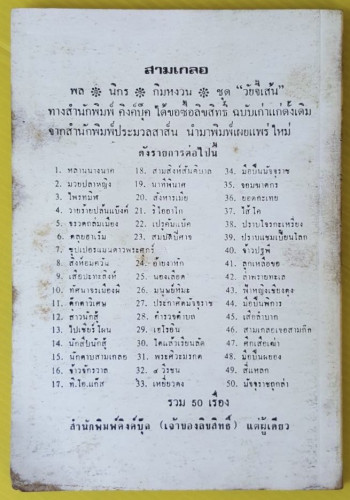 สามเกลอ
พล ❋ นิกร ❋ กิมหงวน ❋ ชุด "วัยจี๊เส้น"
ทางสำนักพิมพ์ คิงค์บุ๊ค ได้ขอซื้อลิขสิทธิ์ ฉบับเก่าแก่ดั้งเดิม
จากสำนักพิมพ์ประมวลสาส์น นำมาพิมพ์เผยแพร่ ใหม่
ดังรายการต่อไปนี้
1. หลานนางนาค
2. มวยปล้ำหญิง
3. ไพรทมิฬ
4. วายร้ายปล้นแบ๊งค์
5. จรวดถล่มเมือง
6. ตลุยฮาเร็ม
7. ซุปเปอร์แมนดาวพระศุกร์
8. สิงห์อมควัน
9. เสือปะทะสิงห์
10. ทัศนาจรเมืองผี
11. ศึกดาวิเศษ
12. สาวนักสู้
13. ไปเชียร์โผน
14. นักสืบนักสู้
15. นักดาบสามเกลอ
16. จ้าวจักรวาล
17. ที.ไอ.แก๊ส
18. สามสิงห์สันติบาล
19. นาทีพิฆาต
20. สังหารเมีย
21. ริโอซาโก
22. เปรตันแบ๊ด
23. สมบัติปีศาจ
24. อ้ายงาหัก
25. นองเลือด
26. มนุษย์หิมะ
27. ประกาศิตมัจจุราช
28. ตำรวจตำบล
29. เฮโรอีน
30. ไดแล้วเรียนลัด
31. พระศิวะมรกต
32. ๔ วีรชน
33. เหยี่ยวดง
34. มือปืนมัจจุราช
35. จอมฆาตกร
36. ยอดกระเทย
37. ไส้โค
38. ปราบโจรกะเหรี่ยง
39. ปราบแชมเปี้ยนโลก
40. จ้าวปฐพี
41. ลูกเหลือขอ
42. ล่าพรายทะเล
43. ผู้ใหญ่เชียงตุง
44. มือปืนพิการ
45. เสือลำบาก
46. สามเกลอเจอสามกิ๊ก
47. ศึกเสือเฒ่า
48. มือปืนผยอง
49. สี่แหลก
50. มัจจุราชถูกล่า
รวม 50 เรื่อง
สำนักพิมพ์คิงค์บุ๊ค (เจ้าของลิขสิทธิ์) แต่ผู้เดียว